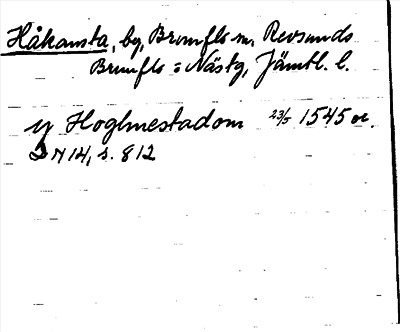 Håkansta, by, Brunflo sn, Revsunds
Brunflo o Näskn, Jämtl. l.
y Hoglmestadom 23/5 1545 or.
DN 14, s. 812